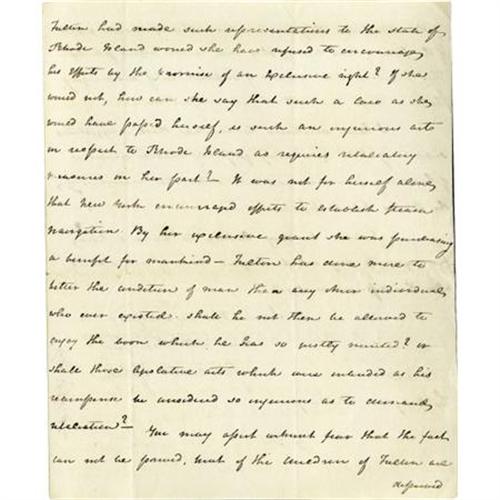 Fulton had made such representations to the state of
Rhode Island would she have refused to encourage
his efforts by the promise of an exclusive right? If she
would not, how can she say that such a law as she
would have passed herself, is such an injurious act
in respect to Rhode Island as requires retaliatory
measures on her part? - It was not for herself alone
that New York encouraged efforts to establish steam
navigation. By her exclusive grant she was purchasing
a benefit for mankind - Fulton has done more to
better the condition of man than any other individual
who ever existed. shall he not then be allowed to
enjoy the boon which he has so justly merited? or
shall those legislative acts which were intended as his
recompense be considered so injurious as to demand
retaliation? - You may assert without fear that the fact
can not be proved, that if the children of Fulton are
deprived